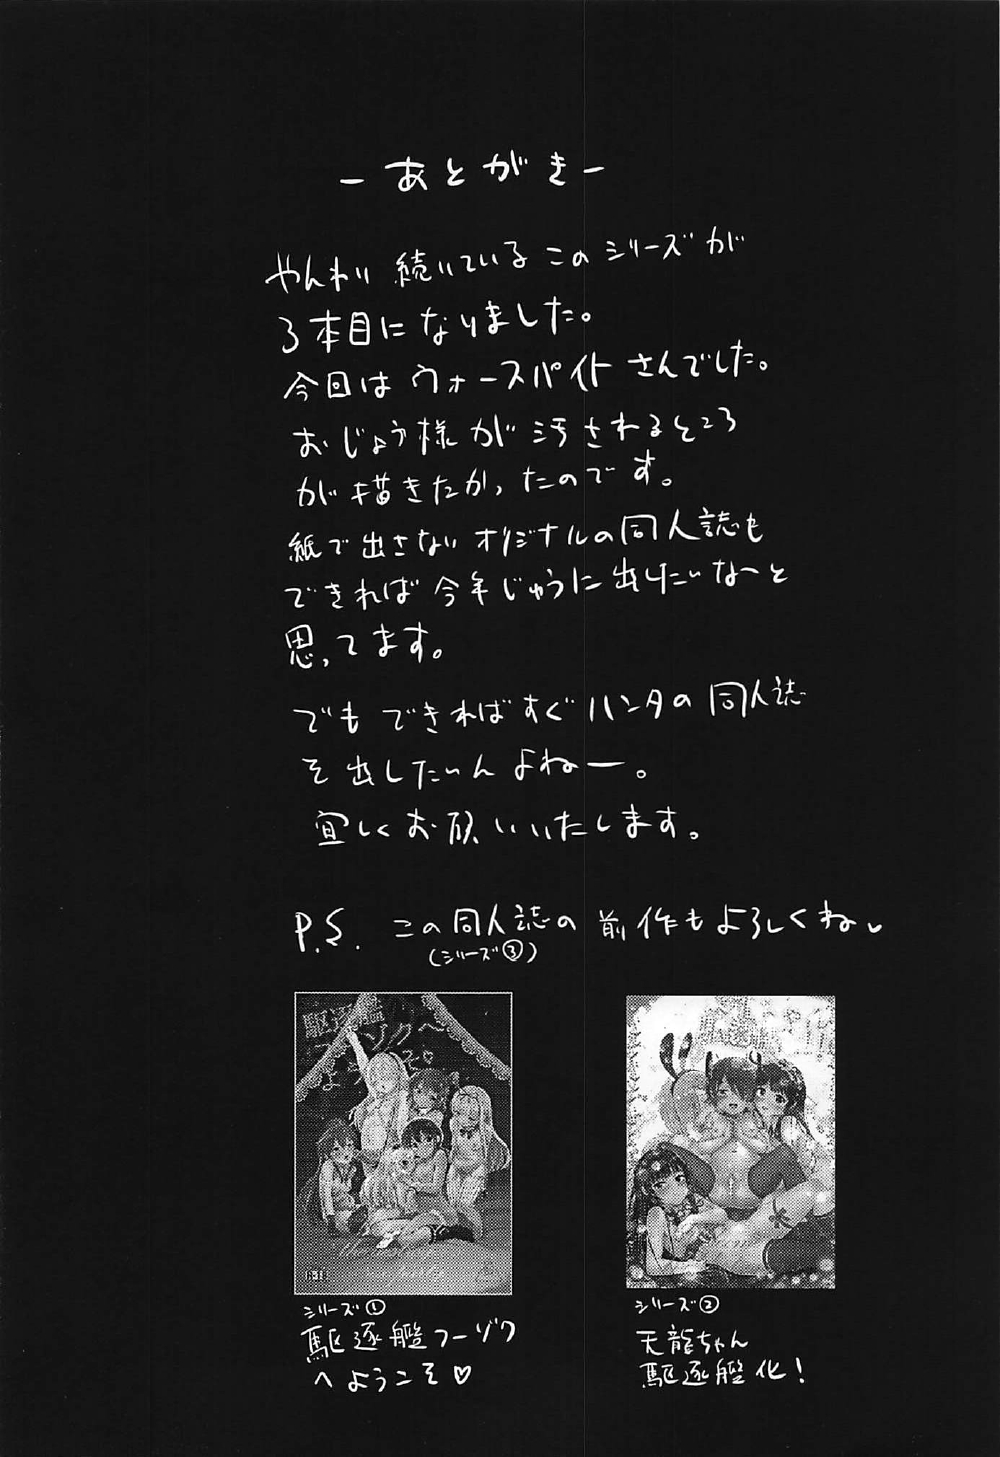 -あとがき-
やんわり続いているこのシリーズが
3本目になりました。
今回はウォースパイトさんでした。
おじょう様が汚されるところ
が描きたかったのです。
紙で出さないオリジナルの同人誌も
できれば今年じゅうに出したいなーと
思ってます。
でもできればすぐハンタの同人誌
を出したいんよねー。
宜しくお願いいたします。
P.S. この同人誌の前作もよろしくね
(シリーズ③)
駆逐艦
フーゾクへ
ようこそ♡
シリーズ①
駆逐艦フーゾク
へようこそ♡
シリーズ②
天龍ちゃん
駆逐艦化!